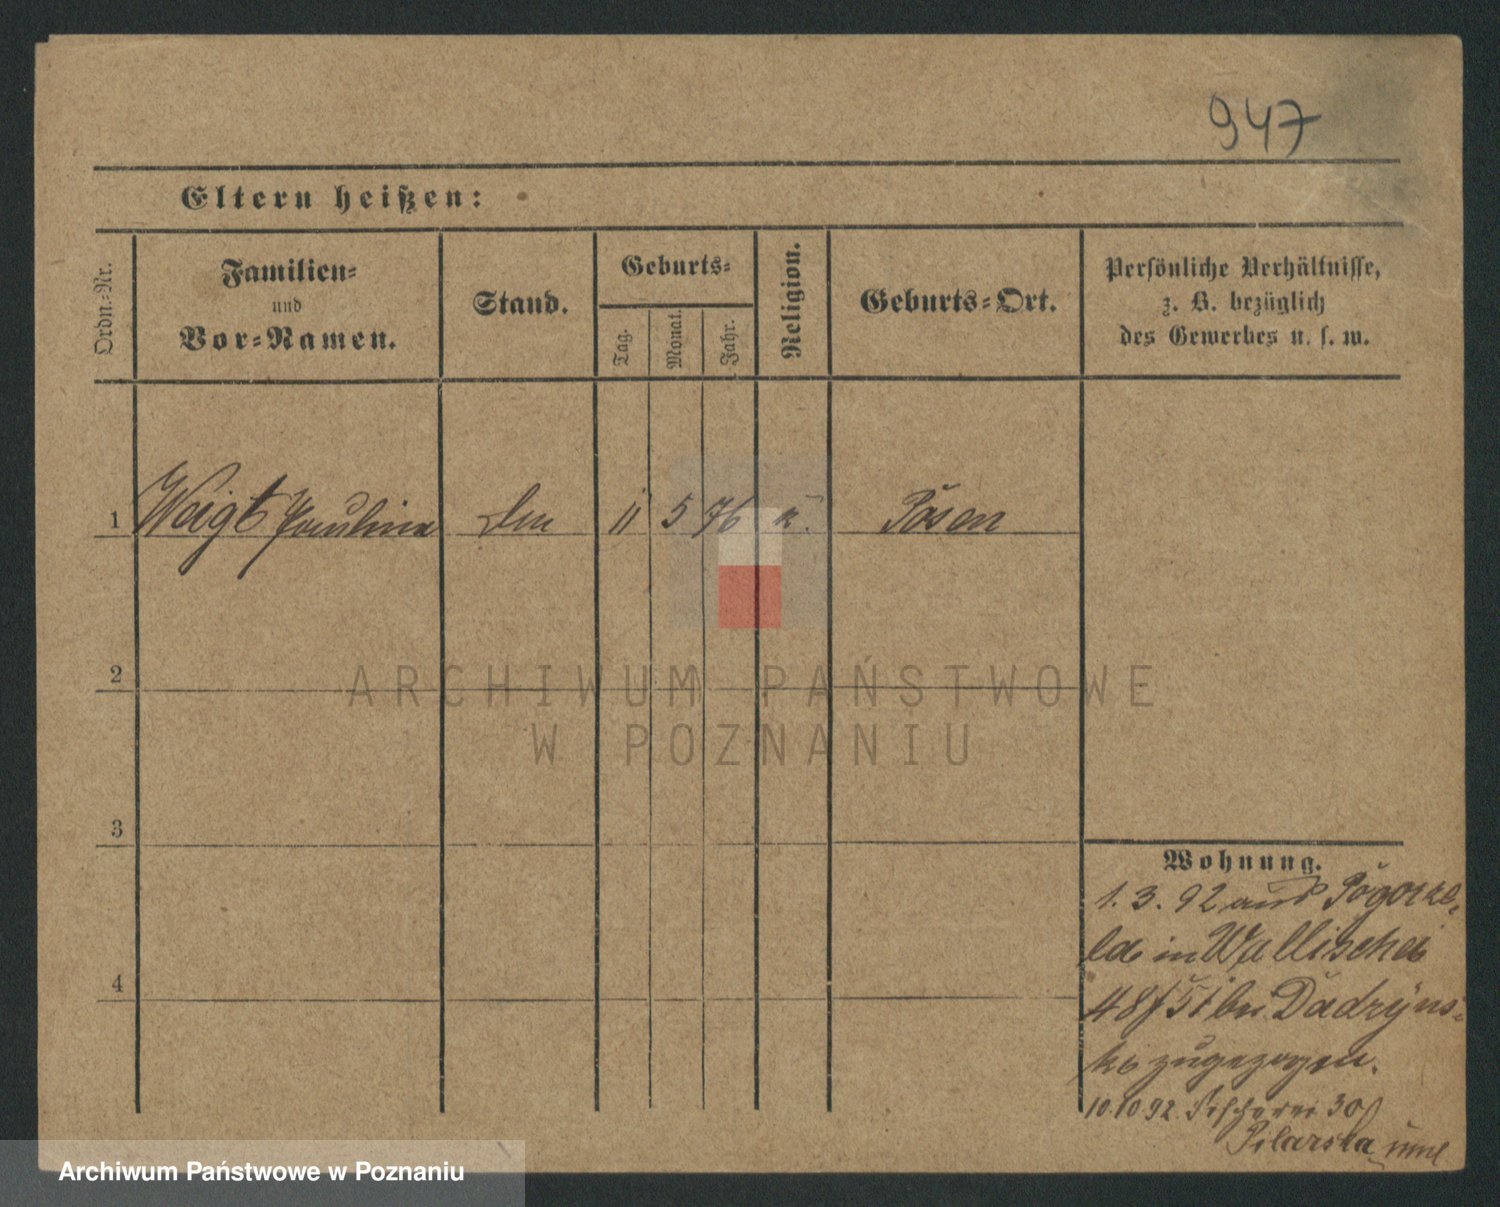 947
Eltern heißen:
Ordn.-Nr.
Familien-
und
Vor-Namen.
Stand.
Geburts-
Tag.
Monat.
Jahr.
Religion.
Geburts-Ort.
Persönliche Verhältnisse,
z. B. bezüglich
des Gewerbes u. s. w.
1 Weigt Paulina 11 5 76 k. Posen
2
3
4
Wohnung.
1. 3. 92 aus
in Wallischei
48/51 bei Dadzyńs-
ki zugezogen.
10.10.92. Fischerei 30/
Pilarska
ARCHIWUM PAŃSTWOWE
W POZNANIU
Archiwum Państwowe w Poznaniu